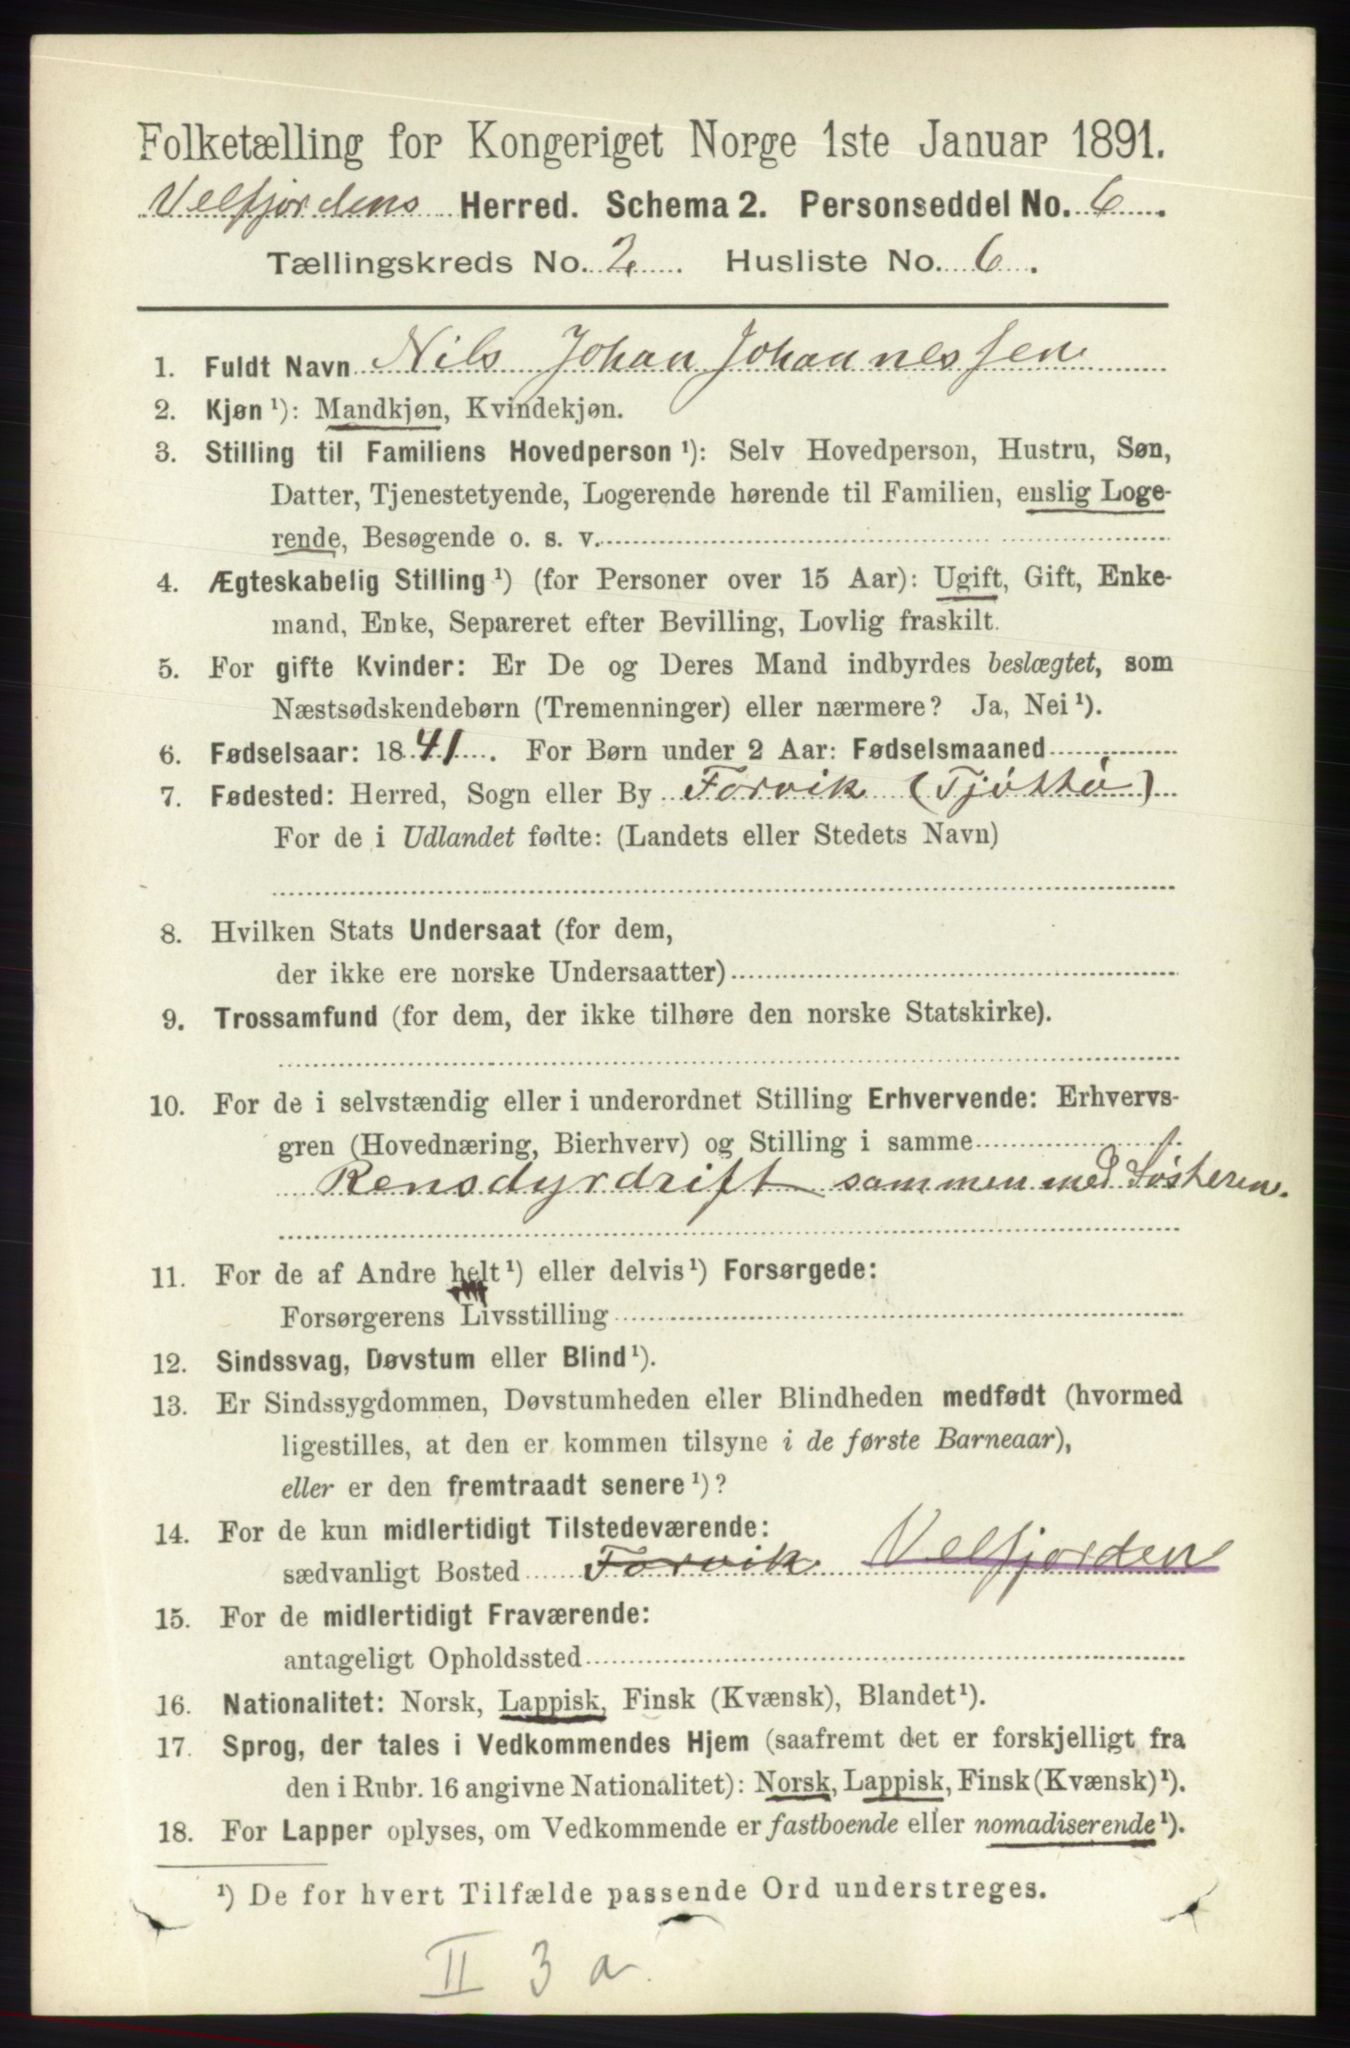 Folketælling for Kongeriget Norge 1ste Januar 1891.
Velfjordens Herred. Schema 2. Personseddel No. 6.
Tællingskreds No. 2. Husliste No. 6.
1. Fuldt Navn Nils Johan Johannessen
2. Kjøn ¹): Mandkjøn, Kvindekjøn.
3. Stilling til Familiens Hovedperson ¹): Selv Hovedperson, Hustru, Søn,
Datter, Tjenestetyende, Logerende hørende til Familien, enslig Loge-
rende, Besøgende o. s. v.
4. Ægteskabelig Stilling ¹) (for Personer over 15 Aar): Ugift, Gift, Enke-
mand, Enke, Separeret efter Bevilling, Lovlig fraskilt.
5. For gifte Kvinder: Er De og Deres Mand indbyrdes beslægtet, som
Næstsødskendebørn (Tremenninger) eller nærmere? Ja, Nei ¹).
6. Fødselsaar: 1841. For Børn under 2 Aar: Fødselsmaaned
7. Fødested: Herred, Sogn eller By Forvik (Tjøttø)
For de i Udlandet fødte: (Landets eller Stedets Navn)
8. Hvilken Stats Undersaat (for dem,
der ikke ere norske Undersaatter)
9. Trossamfund (for dem, der ikke tilhøre den norske Statskirke).
10. For de i selvstændig eller i underordnet Stilling Erhvervende: Erhvervs-
gren (Hovednæring, Bierhverv) og Stilling i samme
Rensdyrdrift sammen med Søsteren.
11. For de af Andre helt ¹) eller delvis ¹) Forsørgede:
Forsørgerens Livsstilling
12. Sindssvag, Døvstum eller Blind ¹).
13. Er Sindssygdommen, Døvstumheden eller Blindheden medfødt (hvormed
ligestilles, at den er kommen tilsyne i de første Barneaar),
eller er den fremtraadt senere ¹)?
14. For de kun midlertidigt Tilstedeværende:
sædvanligt Bosted Forvik Velfjorden
15. For de midlertidigt Fraværende:
antageligt Opholdssted
16. Nationalitet: Norsk, Lappisk, Finsk (Kvænsk), Blandet ¹).
17. Sprog, der tales i Vedkommendes Hjem (saafremt det er forskjelligt fra
den i Rubr. 16 angivne Nationalitet): Norsk, Lappisk, Finsk (Kvænsk) ¹).
18. For Lapper oplyses, om Vedkommende er fastboende eller nomadiserende ¹).
¹) De for hvert Tilfælde passende Ord understreges.
II 3 a.